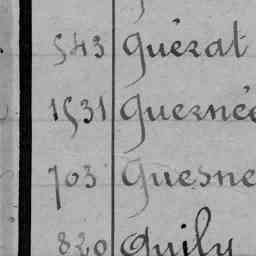 543 Guérat
1531 Guernée
703 Guesne
820 Guily